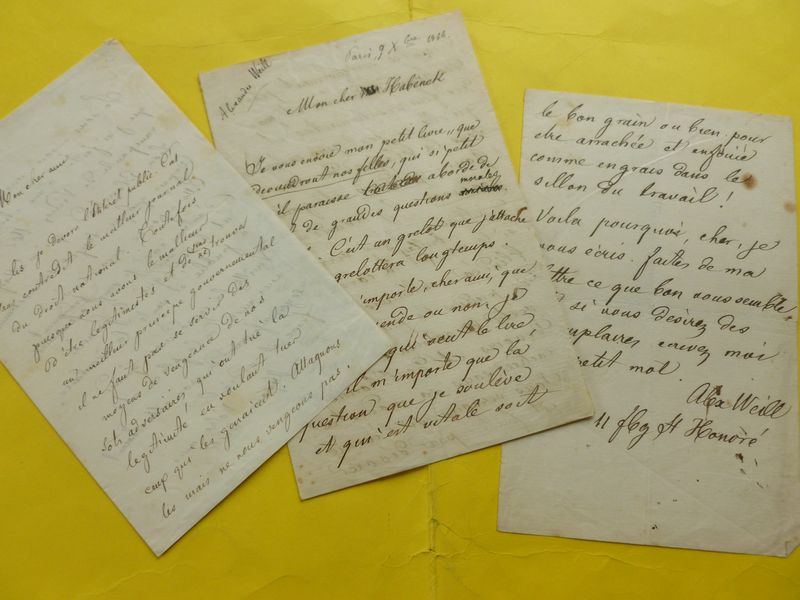 Mon cher ami
lis je dévore l'Intérêt public. C'est
contredit le meilleur journal
du Droit national. Toutefois
puisque nous avons le meilleur
d'être légitimistes et de se retrouver
au meilleur principe gouvernemental
il ne faut pas se servir des
moyens de vengeance de nos
sots adversaires qui ont tué la
légitimité en voulant tuer
ceux qui les gênaient. Attaquons
les mais ne nous vengeons pas.
Alexandre Weill
Paris, 9 Xbre
Mon cher Habeneck
Je vous envoie mon petit livre, "que
deviendront nos filles, qui si petit
il paraisse aborde de
de grandes questions morales.
C'est un grelot que j'attache
grelottera longtemps.
importe, cher ami, que
vende ou non. Je
qui veut le lire,
il m'importe que la
question que je soulève
et qui est vitale soit
le bon grain ou bien pour
être arrachée et enfouie
comme engrais dans le
sillon du travail!
Voila pourquoi, cher, je
vous écris. faites de ma
ce que bon vous semble.
si vous désirez des
exemplaires écrivez moi
petit mot.
Alex Weill
11 fbg St Honoré